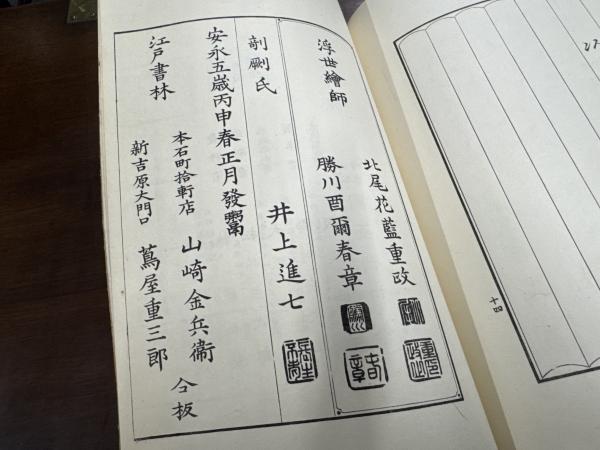 浮世繪師
北尾花藍重政
勝川酉爾春章
剞劂氏
井上進七
安永五歳丙申春正月發鬻
江戸書林
本石町拾軒店
山崎金兵衞
新吉原大門口
蔦屋重三郎
仝板
十四